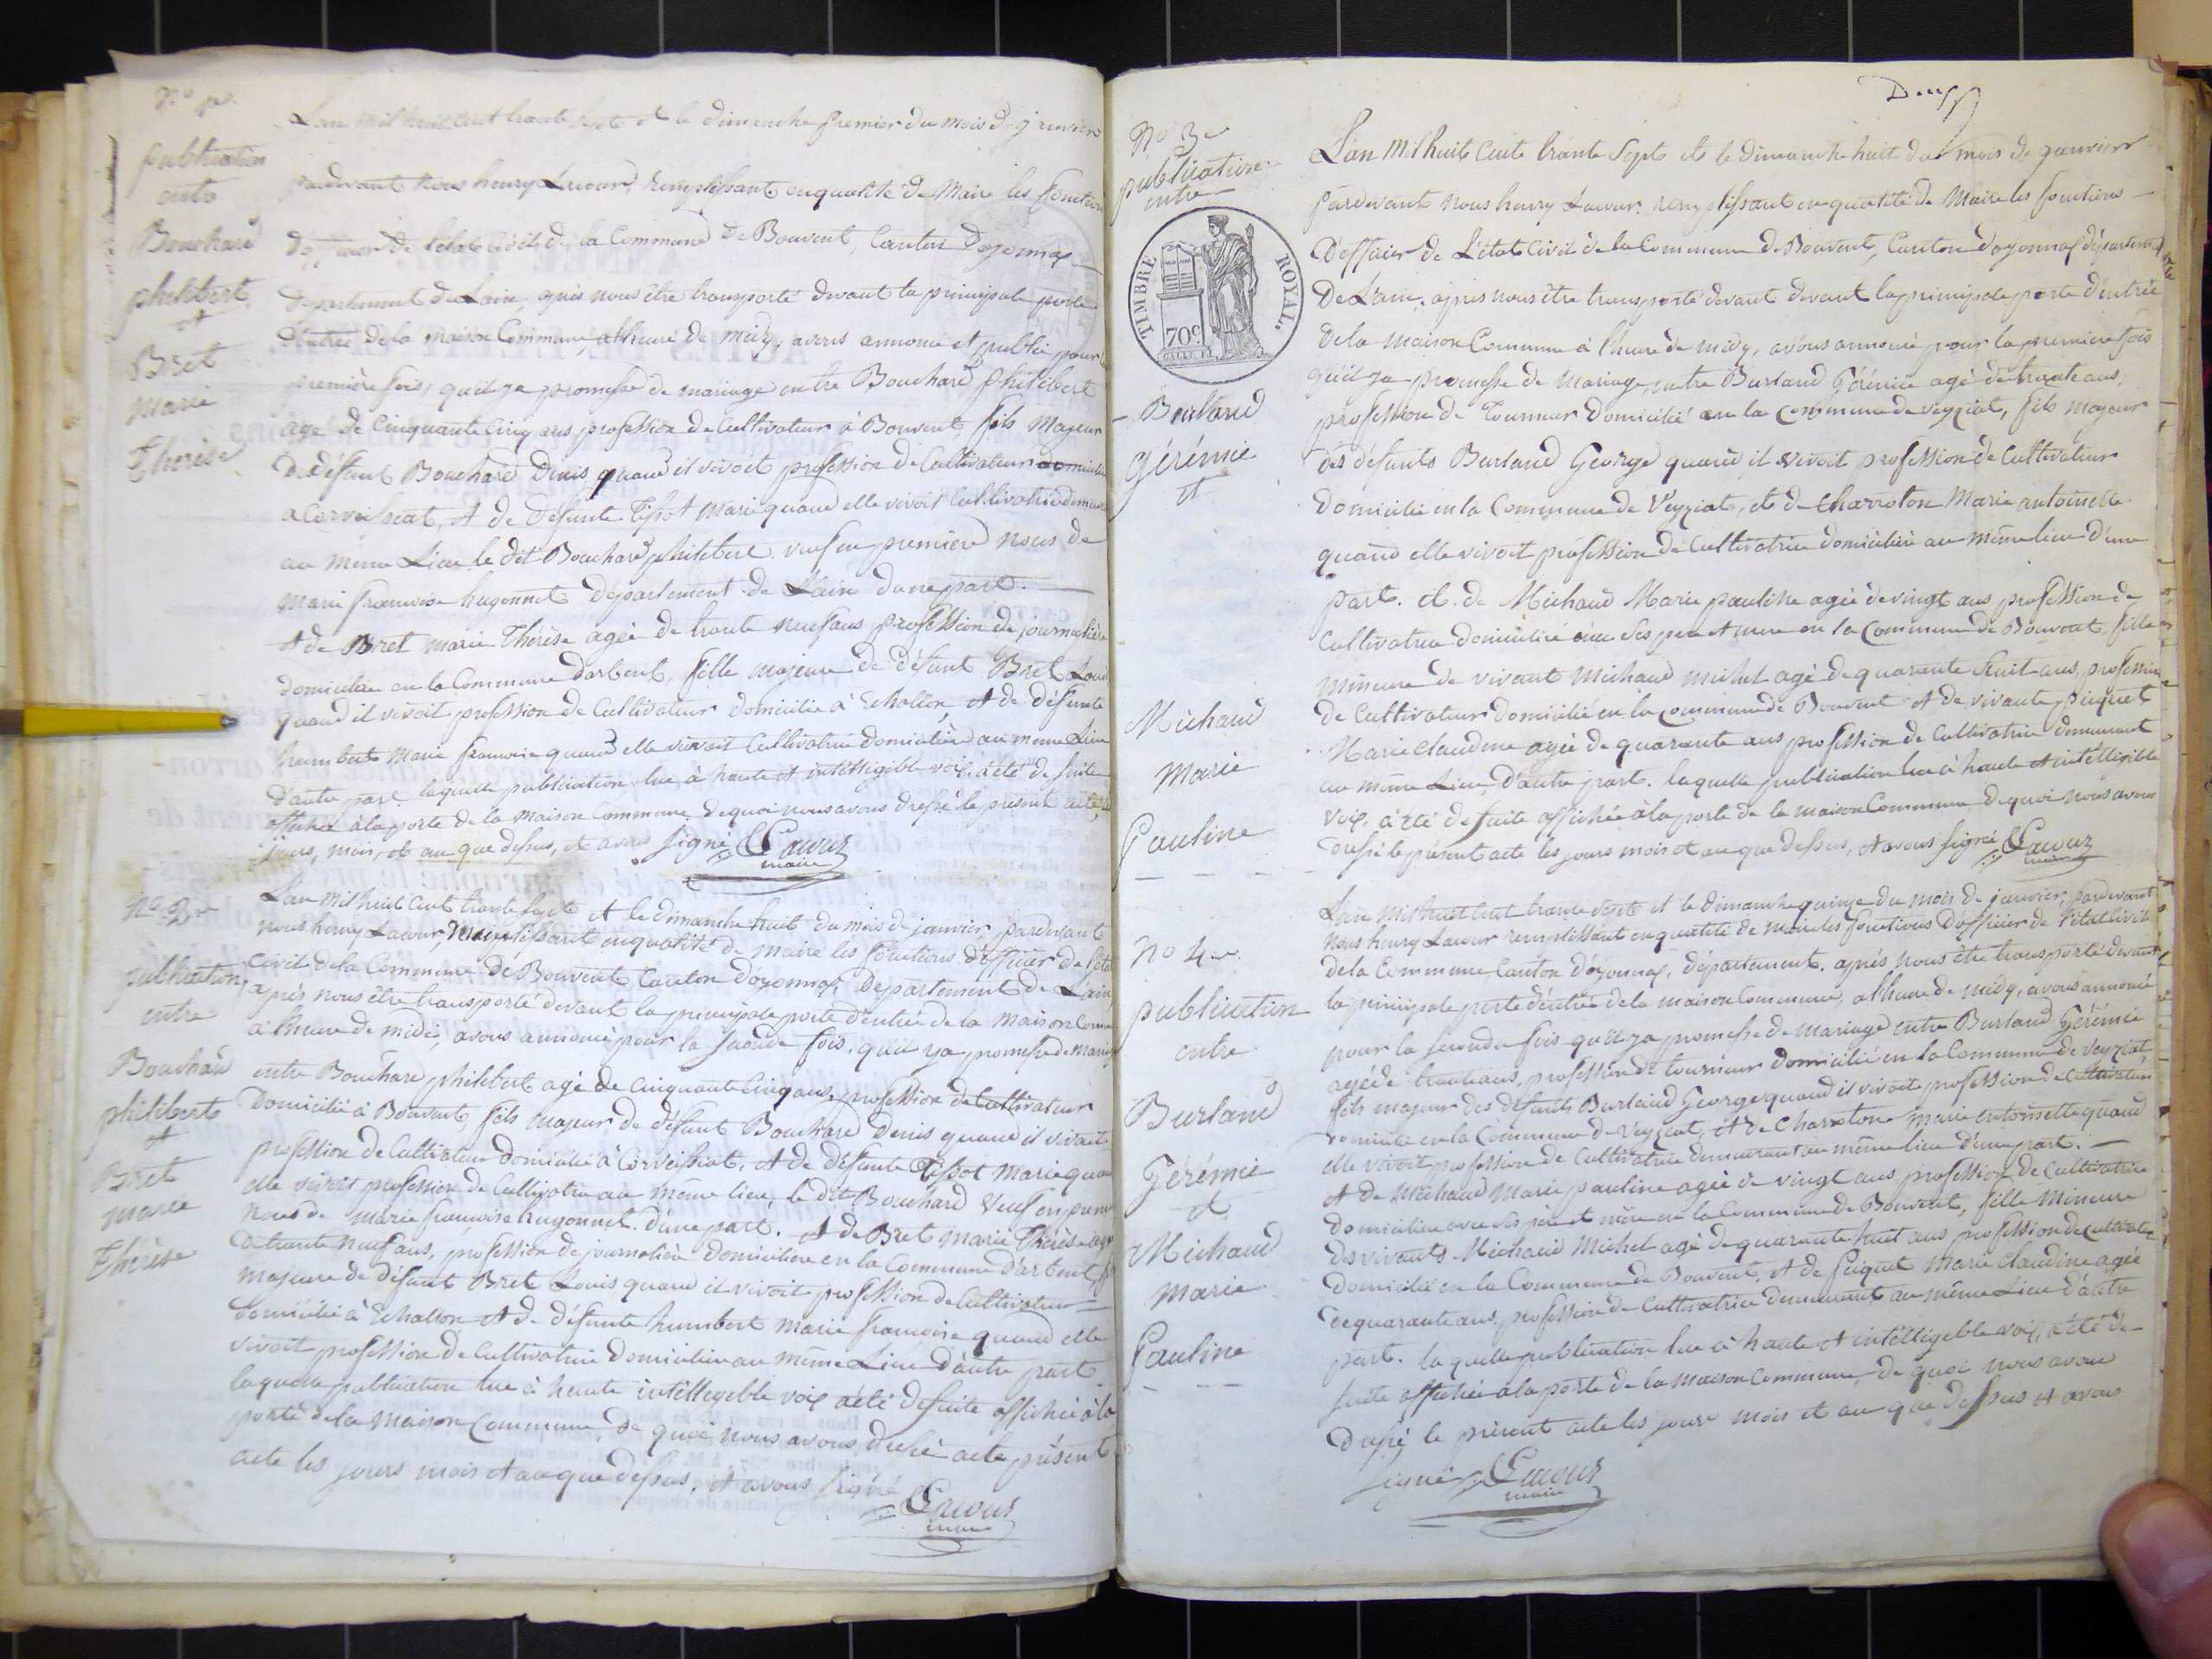 N° 1er
publication
entre
Bouchard
philibert
et
Bret
Marie
Thérèse
L'an mil huit cent trente sept et le dimanche premier du mois de janvier
pardevant nous henry Lacour, remplissant en qualité de Maire les fonctions
d'officier de l'état Civil de la Commune de Bouvent, Canton d'oyonnax
département de Lain, après nous être transporté devant la principale porte
d'entrée de la maison Commune, a l'heure de midy, avons annoncé et publié pour la
première fois, qu'il y a promesse de mariage entre Bouchard philibert
agé de Cinquante Cinq ans profession de Cultivateur à Bouvent, fils Majeur
de défunt Bouchard Denis quand il vivoit profession de Cultivateur domicilié
a Corveissiat, et de Défunte Tissot marie quand elle vivoit Cultivatrice demeurant
au meme Lieu le dit Bouchard philibert veuf en première noces de
marie françoise hugonnet département de Lain d'une part.
et de Bret marie Thérèse agée de trente neuf ans profession de journalière
domiciliée en la Commune d'arbent, fille majeure de défunt Bret Louis
quand il vivoit profession de Cultivateur domicilié à Echallon, et de défunte
humbert Marie françoise quand elle vivoit Cultivatrice domiciliée au meme Lieu
d'autre part laquelle publication lue à haute et intélligible voix, a été de suite
affichée à la porte de la maison Commune, de quoi nous avons dressé le present acte, les
jours, mois, et an que dessus, et avons signé Lacour
maire
N° 2e
publication
entre
Bouchard
philiberte
et
Bret
marie
Thérèse
L'an mil huit Cent trente sept et le dimanche huit du mois de janvier pardevant
nous henry Lacour, remplissant en qualité de maire les fonctions d'officier de l'état
Civil de la Commune de Bouvent, Canton d'oyonnax, Département de L'ain,
après nous être transporté devant la principale porte d'entrée de la maison Commune
a l'heure de midi, avons annoncé pour la seconde fois, qu'il y a promesse de mariage
entre Bouchard philibert agé de Cinquante Cinq ans, profession de Cultivateur
Domicilié à Bouvent, fils majeur de défunt Bouchard Denis quand il vivoit
profession de Cultivateur domicilié à Corveissiat, et de défunte Tissot Marie quand
elle vivoit profession de Cultivatrice au même lieu, le dit Bouchard Veuf en première
noces de marie françoise hugonnet d'une part. et de Bret marie Thérèse agée
de trente neuf ans, profession de journalière domiciliée en la Commune d'arbent, fille
majeure de défunt Bret Louis quand il vivoit profession de Cultivateur
domicilié à Echallon et de défunte humbert marie françoise quand elle
vivoit profession de Cultivatrice domiciliée au même Lieu d'autre part
laquelle publication lue à haute intélligeble voix a été de suite affichée à la
porte de la maison Commune, de quoi nous avons dressé acte présent
acte les jours mois et an que dessus, et avons signé
Lacour
maire
Deux
N° 3e
publication
entre
TIMBRE ROYAL.
70c
Burland
gérémie
et
Michaud
Marie
Pauline
L'an Mil huit Cent trente Sept et le dimanche huit du mois de janvier
pardevant nous henry Lacour, remplissant en qualité de Maire les fonctions
D'officier de L'état Civil de la Commune de Bouvent, Canton d'oyonnax département
De L'ain, après nous être transporté devant devant la principale porte d'entrée
de la maison Commune à l'heure de midy, avons annoncé pour la premiere fois
qu'il y a promesse de mariage, entre Burland Gérémie agé de trente ans,
profession de Tourneur domicilié en la Commune de veyziat, fils majeur
des défunts Burland George quand il vivoit profession de Cultivateur
domicilié en la Commune de Veyziat, et de Charreton Marie antoinette
quand elle vivoit profession de Cultivatrice domiciliée au même lieu d'une
part. et de Michaud Marie pauline agée de vingt ans profession de
Cultivatrice domiciliée avec ses père et mere en la Commune de Bouvent, fille
mineure de vivant Michaud michel agé de quarante huit ans, profession
de Cultivateur domicilié en la Commune de Bouvent et de vivante piquet
Marie claudine agée de quarante ans profession de Cultivatrice demeurant
au même Lieu d'autre part. laquelle publication lue à haute et intélligible
voix, a été de suite affichée à la porte de la maison Commune de quoi nous avons
dressé le présent acte les jours mois et an que dessus, et avons signé Lacour
maire
N° 4e
publication
entre
Burland
Gérémie
et
Michaud
Marie
Pauline
L'an mil huit cent trente sept et le dimanche quinze du mois de janvier, pardevant
nous henry Lacour remplissant en qualité de maire les fonctions d'officier de l'état civil
de la Commune Canton d'oyonnax, département. après nous être transporté devant
la principale porte d'entrée de la maison Commune, a l'heure de midy, avons annoncé
pour la seconde fois qu'il y a promesse de mariage entre Burland Gérémie
agé de trente ans, profession de tourneur domicilié en la Commune de veyziat,
fils majeur des défunts Burland George quand il vivoit profession de Cultivateur
domicilié en la Commune de Veyziat, et de Charreton marie antoinette quand
elle vivoit profession de Cultivatrice demeurant au même lieu d'une part.
et de Michaud Marie pauline agée de vingt ans profession de Cultivatrice
domiciliée avec ses père et mère en la Commune de Bouvent, fille mineure
des vivants Michaud Michel agé de quarante huit ans profession de cultivateur
domicilié en la Commune de Bouvent, et de piquet Marie claudine agée
de quarante ans, profession de Cultivatrice demeurant au même Lieu d'autre
part. la quelle publication lue à haute et intélligeble voix, a été de
suite affichée à la porte de la maison Commune, de quoi nous avons
dressé le présent acte les jours mois et an que dessus et avons
signé Lacour
maire